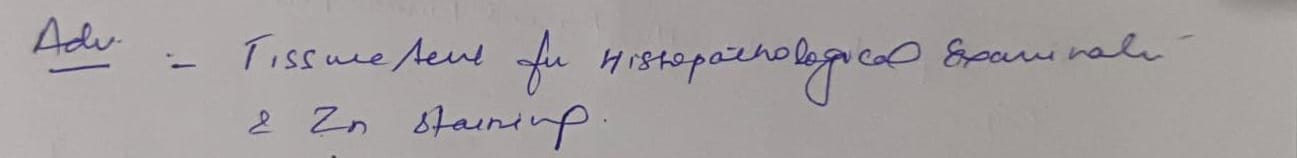 Adv. :- Tissue sent for Histopathological Examination
& Zn staining.